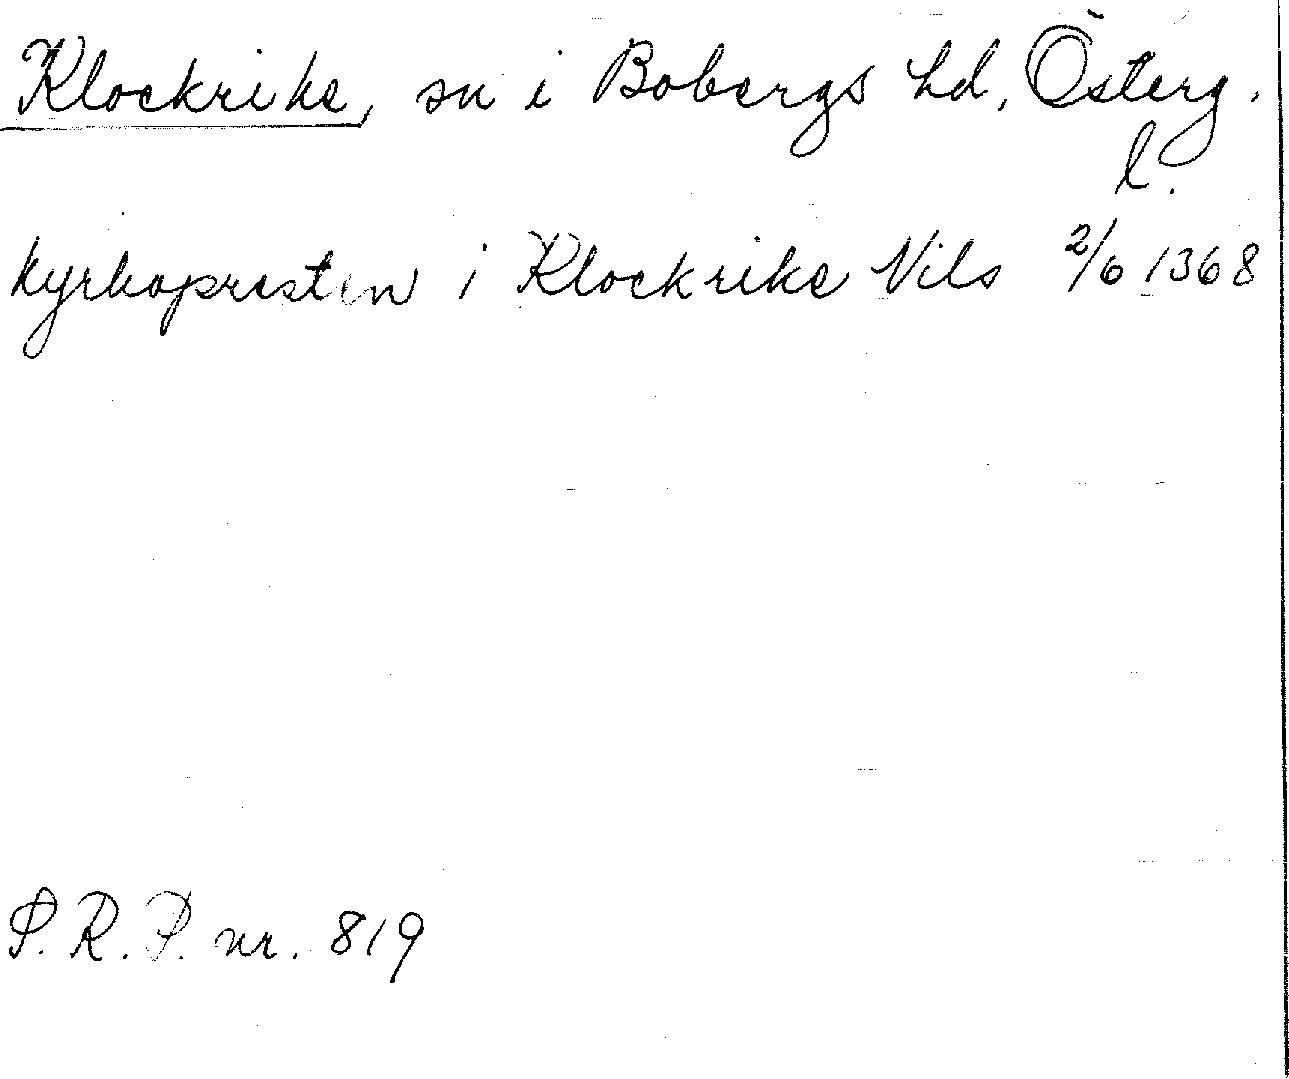 Klockrike, sn i Bobergs hd, Österg.
l.
kyrkopresten i Klockrike Nils 2/6 1368
P. R. P. nr. 819